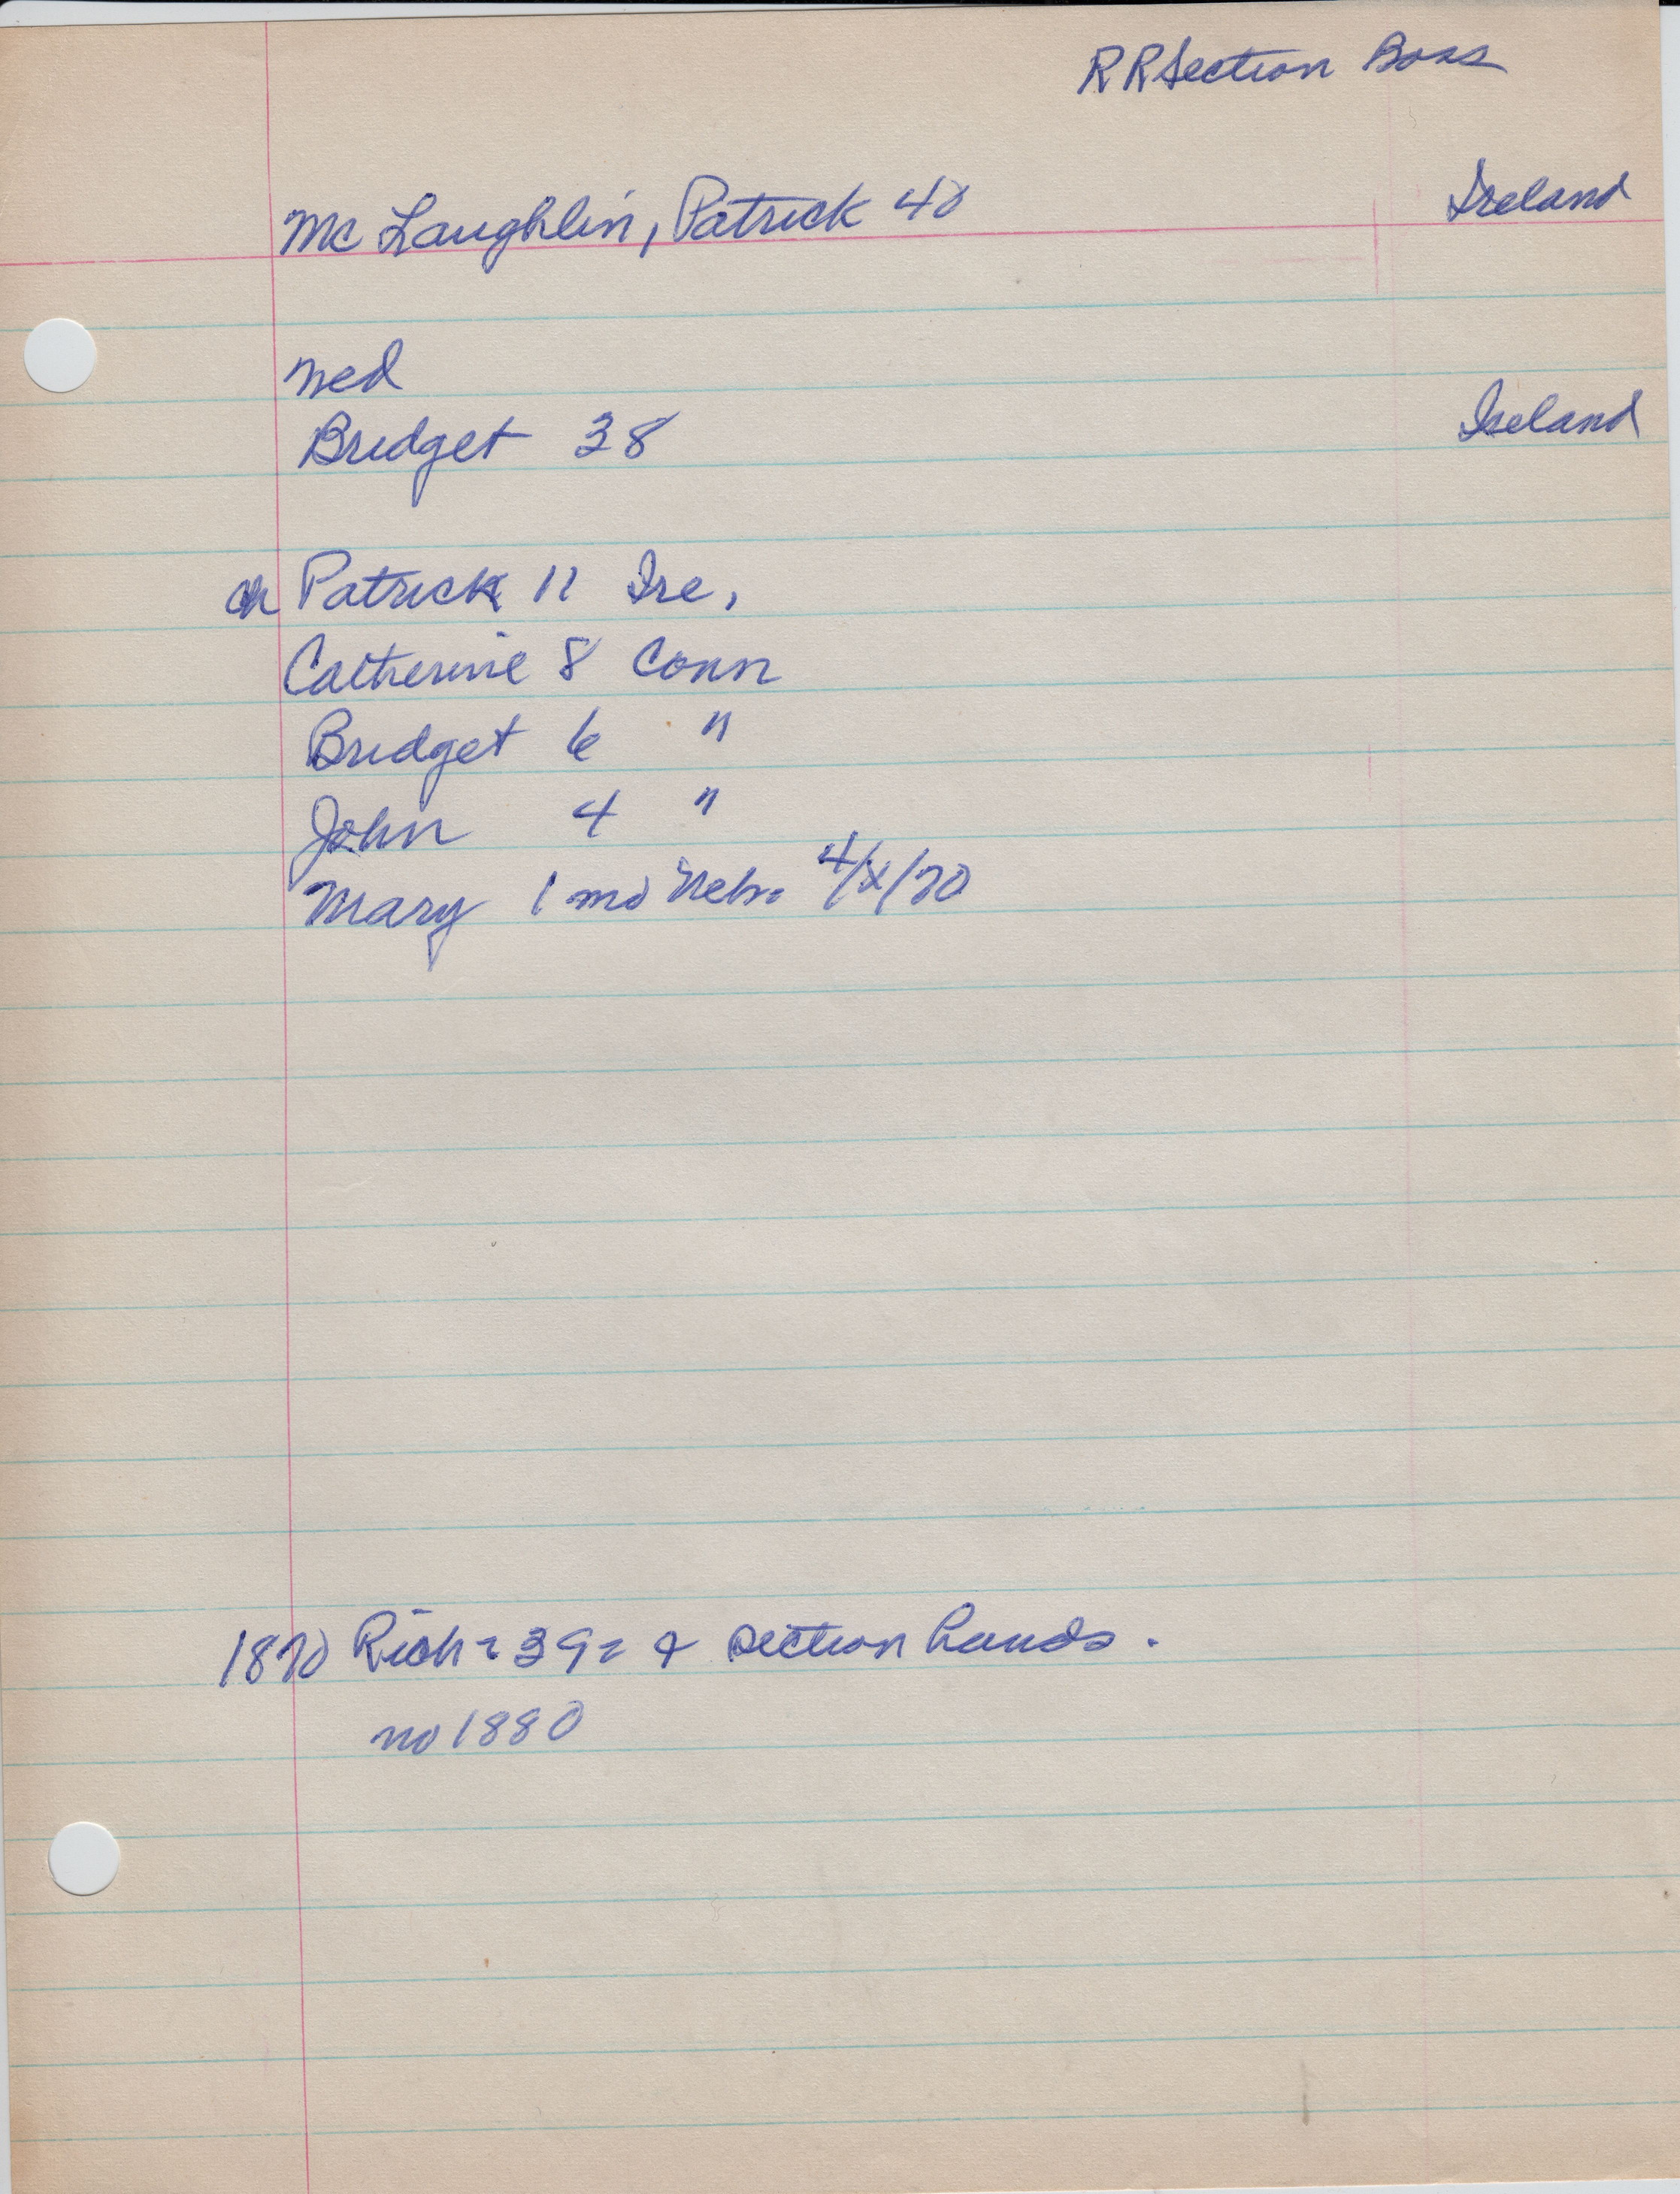 RR Section Boss
McLaughlin, Patrick 40 Ireland
Med
Bridget 38 Ireland
ch Patrick 11 Ire,
Catherine 8 Conn
Bridget 6 "
John 4 "
Mary 1 mo Nebr. 4/x/70
1870 Rich = 39 = 4 section hands.
no 1880